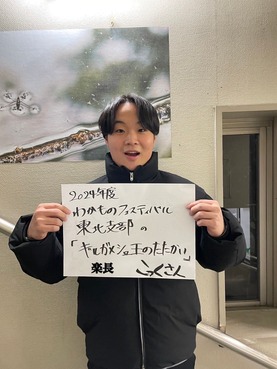 2024年度
わかものフェスティバル
東北支部の
「ギルガメシュ王のたたかい」
楽長 こっくさん